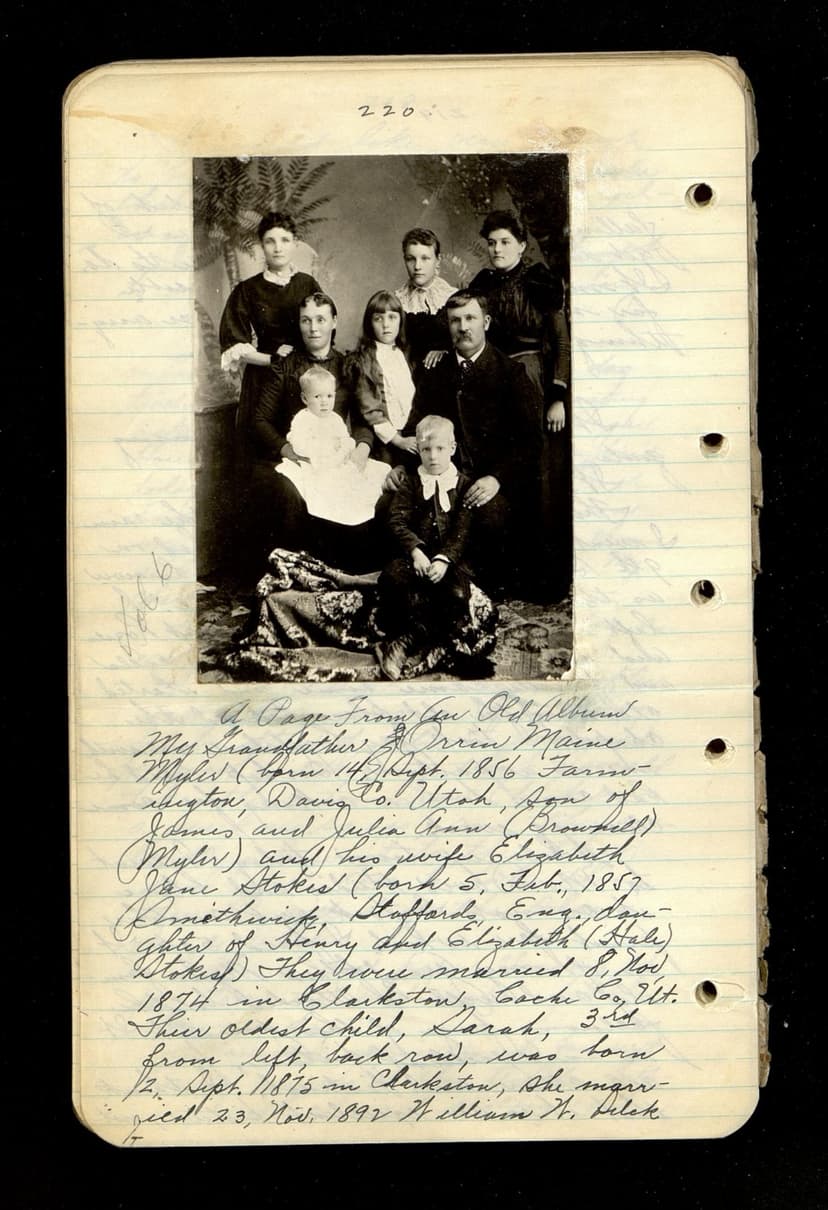 220.
A Page From An Old Album
My Grandfather Orrin Maine
Myler (born 14, Sept. 1856 Farm-
ington, Davis Co. Utah, son of
James and Julia Ann (Brownell)
(Myler) and his wife Elizabeth
Jane Stokes (born 5, Feb., 1857
Smethwick, Staffords, Eng., dau-
ghter of Henry and Elizabeth (Hale)
Stokes) They were married 8, Nov,
1874 in Clarkston, Cache Co, Ut.
Their oldest child, Sarah, 3rd
from left, back row, was born
12, Sept. 1875 in Clarkston, she marr-
ied 23, Nov. 1892 William W.